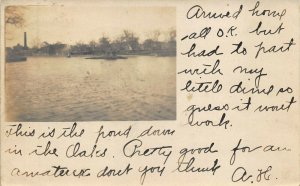 Arrived home
all O.K. but
had to part
with my
little dime so
guess it wont
work.
This is the pond down
in the Oaks. Pretty good for an
amateur dont you think
A. H.